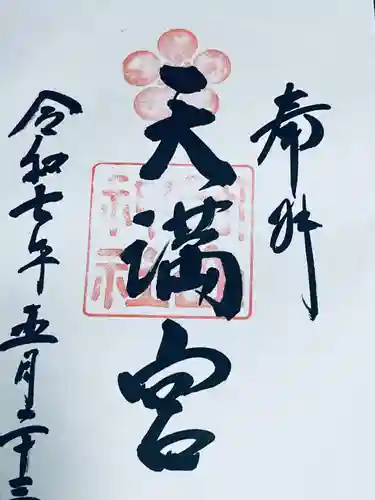 奉拝
天満宮
令和七年五月二十三